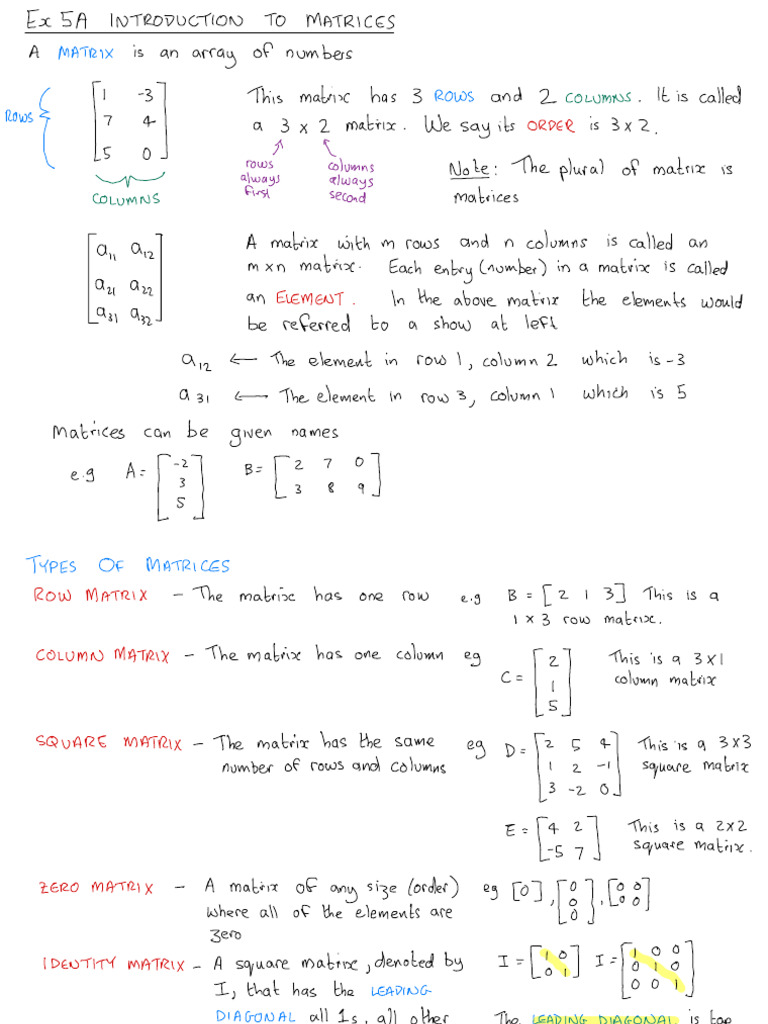 Ex 5A INTRODUCTION TO MATRICES
A MATRIX is an array of numbers
ROWS
[1 -3
7 4
5 0]
COLUMNS
This matrix has 3 ROWS and 2 COLUMNS. It is called
a 3 x 2 matrix. We say its ORDER is 3 x 2.
rows always first
columns always second
Note: The plural of matrix is
matrices
[a11 a12
a21 a22
a31 a32]
A matrix with m rows and n columns is called an
m x n matrix. Each entry (number) in a matrix is called
an ELEMENT. In the above matrix the elements would
be referred to a show at left
a12 ← The element in row 1, column 2 which is -3
a31 ← The element in row 3, column 1 which is 5
Matrices can be given names
e.g A = [-2
3
5]
B = [2 7 0
3 8 9]
TYPES OF MATRICES
ROW MATRIX - The matrix has one row e.g B = [2 1 3] This is a
1 x 3 row matrix.
COLUMN MATRIX - The matrix has one column eg
C = [2
1
5]
This is a 3 x 1
column matrix
SQUARE MATRIX - The matrix has the same
number of rows and columns
eg D = [2 5 4
1 2 -1
3 -2 0]
This is a 3 x 3
square matrix
E = [4 2
-5 7]
This is a 2 x 2
square matrix.
ZERO MATRIX - A matrix of any size (order)
where all of the elements are
zero
eg [0], [0
0
0], [0 0
0 0]
IDENTITY MATRIX - A square matrix, denoted by
I, that has the LEADING
DIAGONAL all 1s, all other
I = [1 0
0 1]
I = [1 0 0
0 1 0
0 0 1]
The LEADING DIAGONAL is top